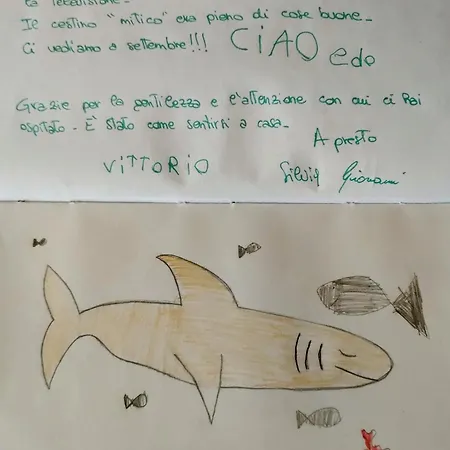 la televisione.
Il cestino "mitico" era pieno di cose buone.
Ci vediamo a settembre!!! CIAO edo
Grazie per la gentilezza e l'attenzione con cui ci hai
ospitato. È stato come sentirsi a casa.
A presto
VITTORIO Silvia Giovanni